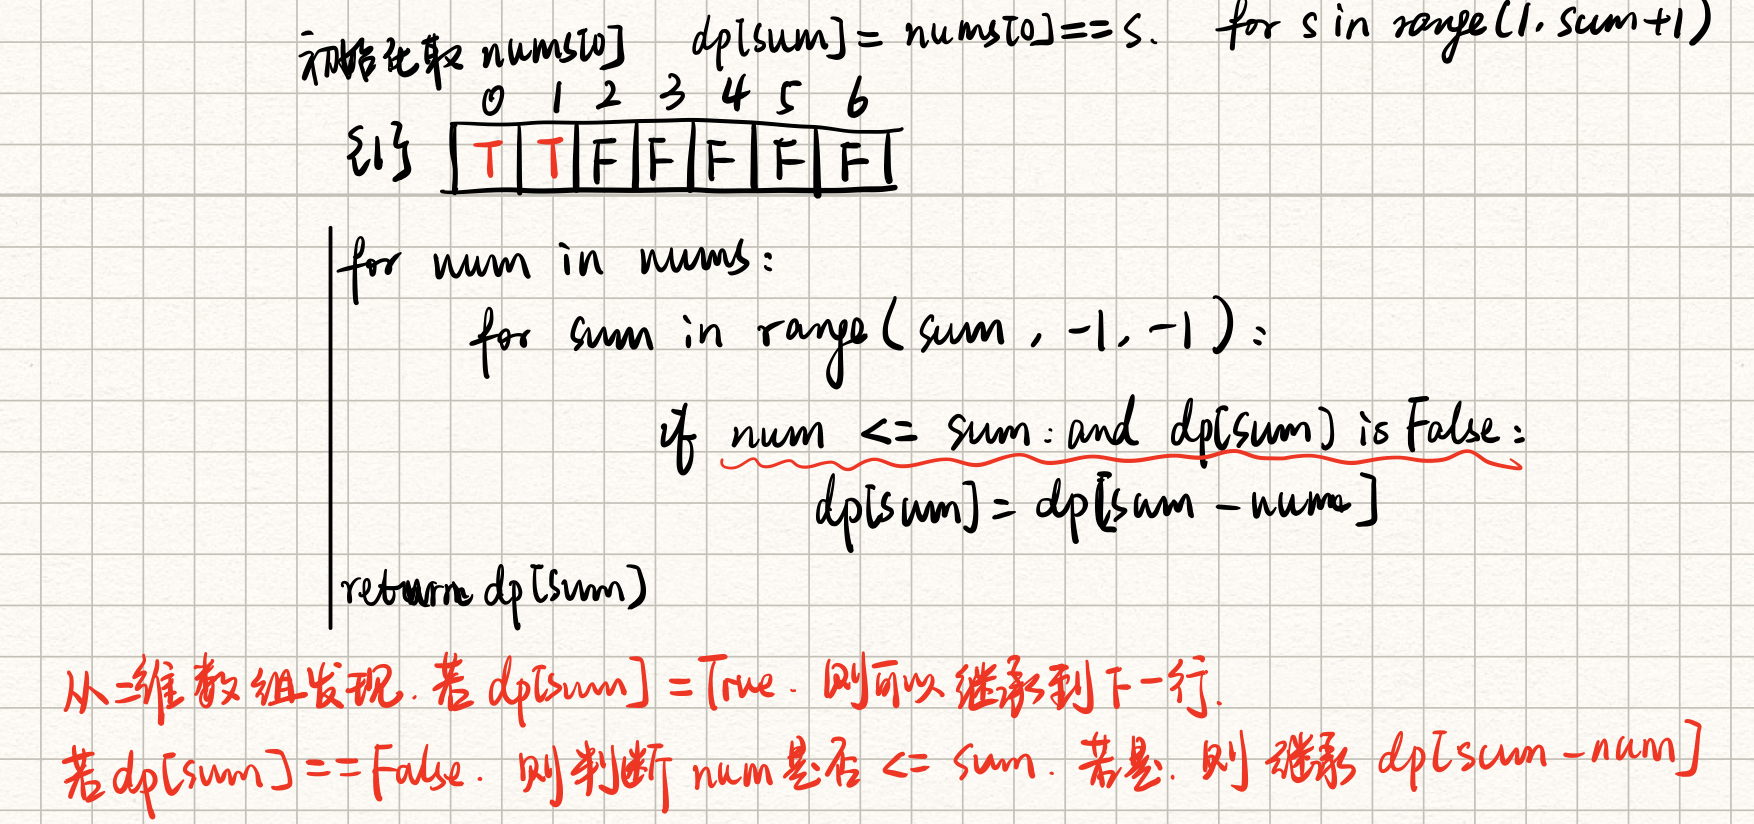 初始化取 nums[0] dp[sum] = nums[0]==s. for s in range(1, sum+1)
0 1 2 3 4 5 6
{1} T T F F F F F
for num in nums:
for sum in range(sum, -1, -1):
if num <= sum: and dp[sum] is False:
dp[sum] = dp[sum - num]
return dp[sum]
从二维数组发现. 若 dp[sum] = True. 则可以继承到下一行.
若 dp[sum] == False. 则判断 num 是否 <= sum. 若是. 则 继承 dp[sum-num]